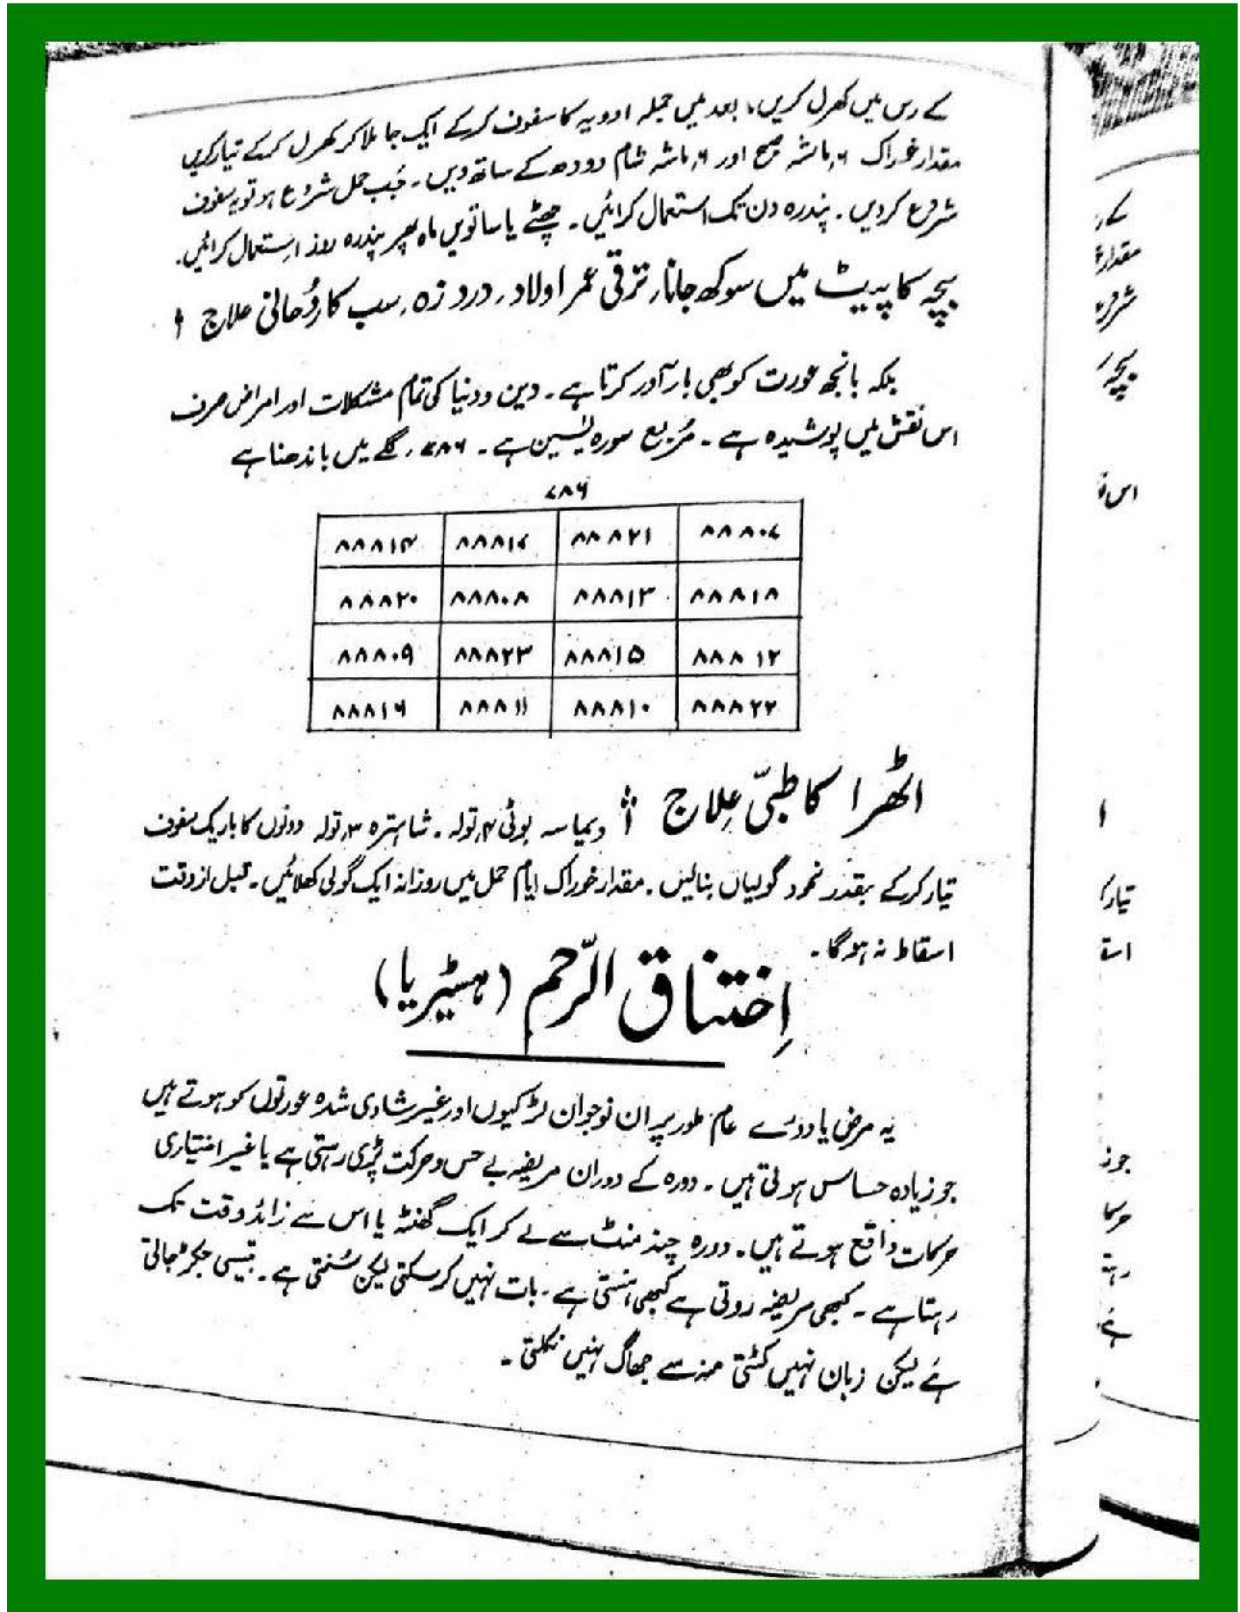 کے رس میں کھرل کریں، بعد میں جملہ ادویہ کا سفوف کرکے ایک جا ملا کر کھرل کرکے تیار کریں
مقدار خوراک ۶ ماشہ صبح اور ۶ ماشہ شام دودھ کے ساتھ دیں۔ جب حمل شروع ہو تو یہ سفوف
شروع کردیں۔ پندرہ دن تک استعمال کرائیں۔ چھٹے یا ساتویں ماہ پھر پندرہ روز استعمال کرائیں۔
بچہ کا پیٹ میں سوکھ جانا، ترقی عمر اولاد، درد زہ، سب کا رُحانی علاج
بلکہ بانجھ عورت کو بھی بارآور کرتا ہے۔ دین و دنیا کی تمام مشکلات اور امراض صرف
اس نقش میں پوشیدہ ہے۔ مُربع سورہ یٰسین ہے۔ ۷۸۶، گلے میں باندھنا ہے
۷۸۶
۸۸۸۰۷ ۸۸۸۲۱ ۸۸۸۱۷ ۸۸۸۱۴
۸۸۸۱۸ ۸۸۸۱۳ ۸۸۸۰۸ ۸۸۸۲۰
۸۸۸۱۲ ۸۸۸۱۵ ۸۸۸۲۳ ۸۸۸۰۹
۸۸۸۲۲ ۸۸۸۱۰ ۸۸۸۱۱ ۸۸۸۱۶
اٹھرا کا طبّی عِلاج
دہماسہ بوٹی ۴ تولہ۔ شاہترہ ۳ تولہ دونوں کا باریک سفوف
تیار کرکے بقدر نخود گولیاں بنالیں۔ مقدار خوراک ایام حمل میں روزانہ ایک گولی کھلائیں۔ قبل از وقت
اسقاط نہ ہوگا۔
اِختناق الرّحم (ہسٹیریا)
یہ مرض یا دورے عام طور پر ان نوجوان لڑکیوں اور غیر شادی شدہ عورتوں کو ہوتے ہیں
جو زیادہ حساس ہوتی ہیں۔ دورہ کے دوران مریضہ بے حس و حرکت پڑی رہتی ہے یا غیر اختیاری
حرکات واقع ہوتے ہیں۔ دورہ چند منٹ سے لے کر ایک گھنٹہ یا اس سے زائد وقت تک
رہتا ہے۔ کبھی مریضہ روتی ہے کبھی ہنستی ہے۔ بات نہیں کرسکتی لیکن سُنتی ہے۔ بتیسی جکڑ جاتی
ہے لیکن زبان نہیں کٹتی منہ سے جھاگ نہیں نکلتی۔